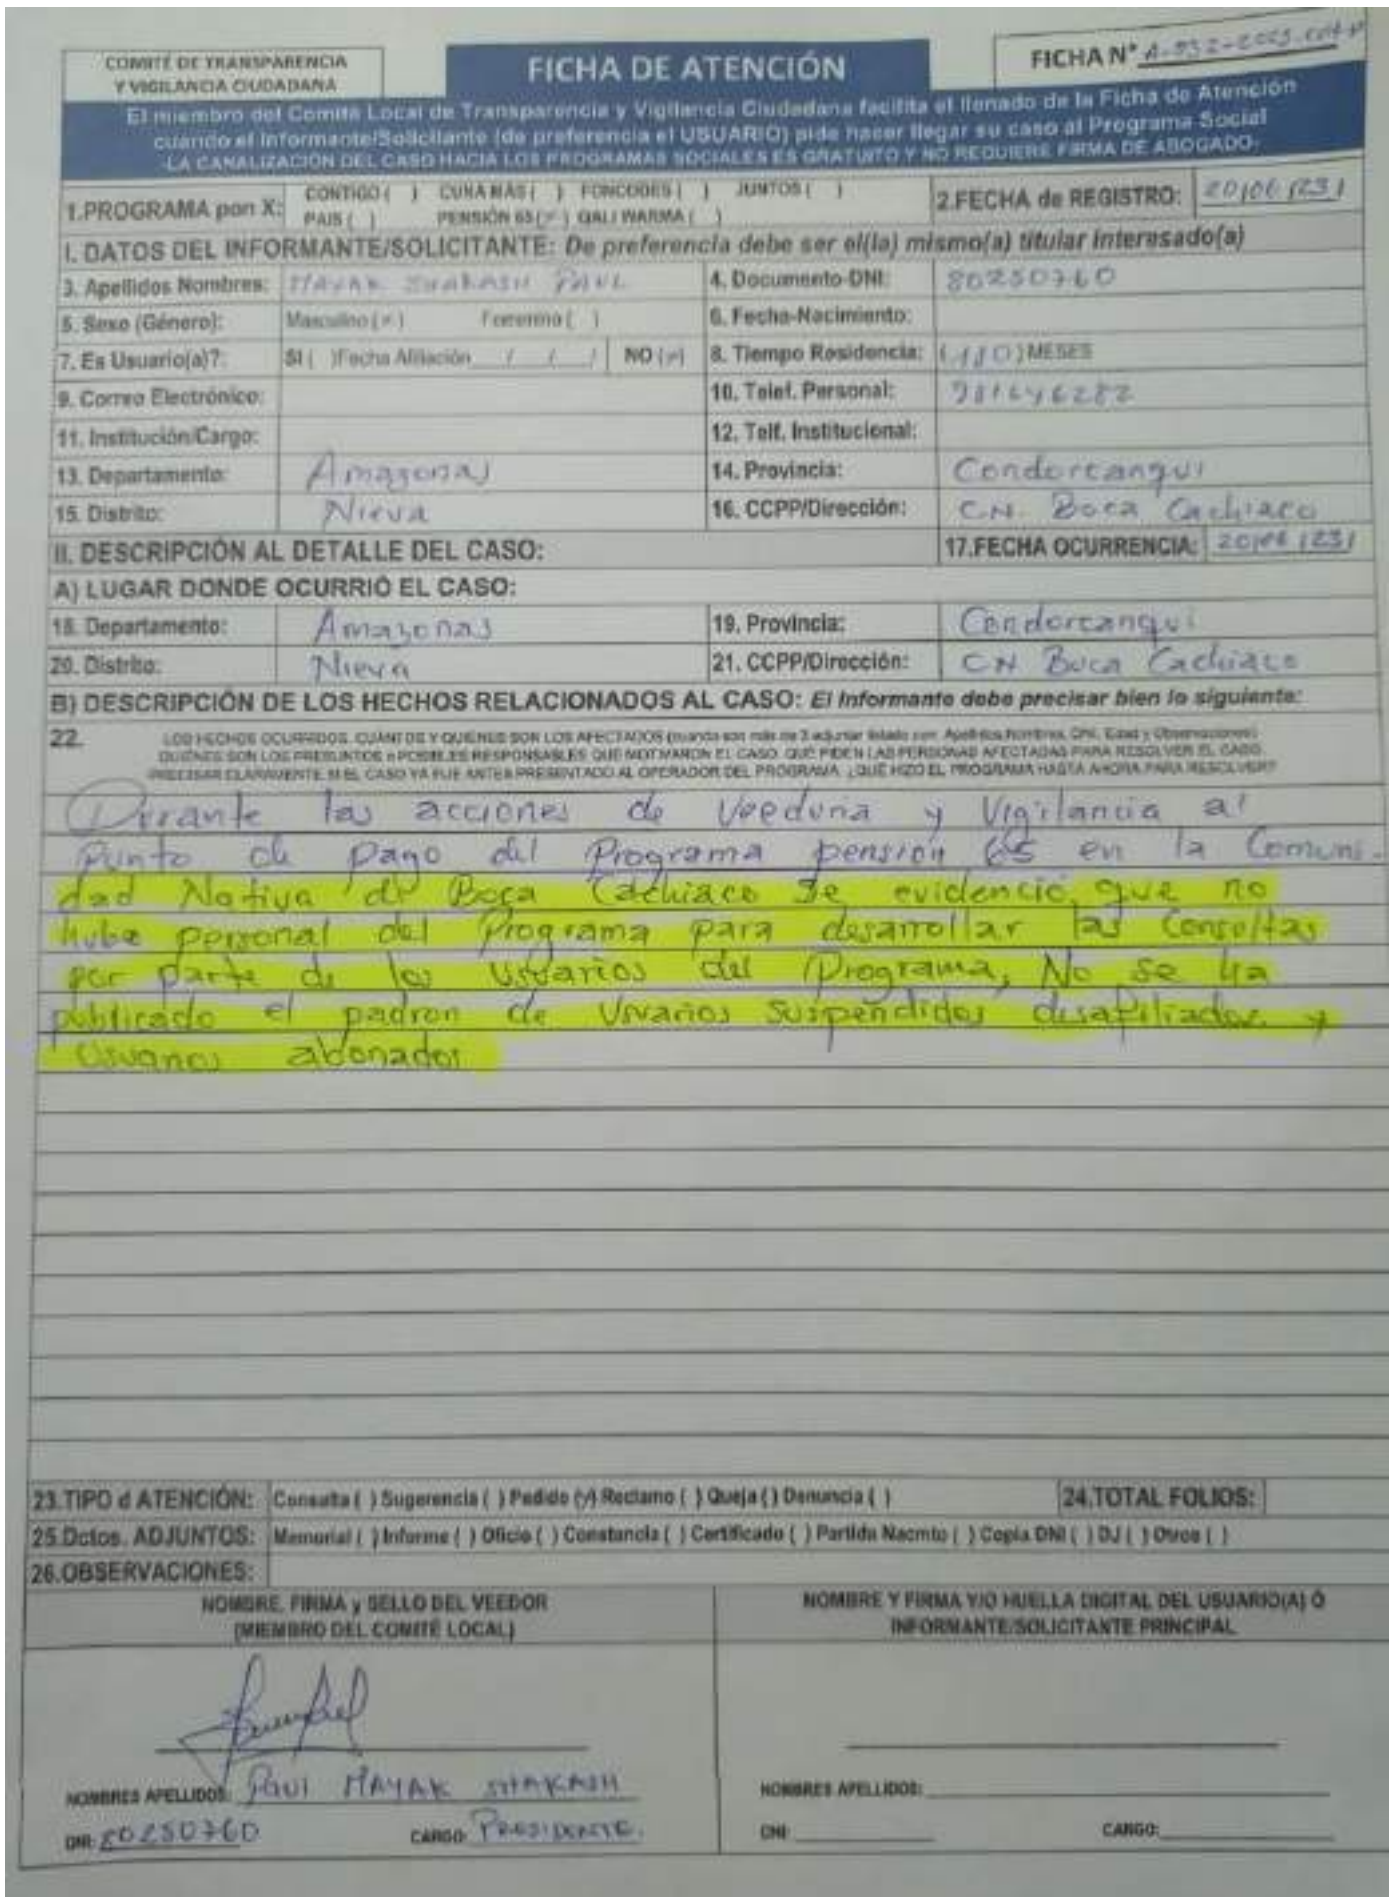 COMITÉ DE TRANSPARENCIA
Y VIGILANCIA CIUDADANA
FICHA DE ATENCIÓN
FICHA N°
El miembro del Comité Local de Transparencia y Vigilancia Ciudadana facilita el llenado de la Ficha de Atención
cuando el Informante/Solicitante (de preferencia el USUARIO) pide hacer llegar su caso al Programa Social
-LA CANALIZACIÓN DEL CASO HACIA LOS PROGRAMAS SOCIALES ES GRATUITO Y NO REQUIERE FIRMA DE ABOGADO-
1.PROGRAMA pon X: CONTIGO ( ) CUNA MÁS ( ) FONCODES ( ) JUNTOS ( )
PAIS ( ) PENSIÓN 65 (x) QALI WARMA ( )
2.FECHA de REGISTRO: 20/06/23/
I. DATOS DEL INFORMANTE/SOLICITANTE: De preferencia debe ser el(la) mismo(a) titular interesado(a)
3. Apellidos Nombres: MAYAK SHAKASH PAUL 4. Documento-DNI: 80250760
5. Sexo (Género): Masculino (x) Femenino ( ) 6. Fecha-Nacimiento:
7. Es Usuario(a)?: SI ( )Fecha Afiliación / / / NO (x) 8. Tiempo Residencia: ( )MESES
9. Correo Electrónico: 10. Telef. Personal: 981646282
11. Institución/Cargo: 12. Telf. Institucional:
13. Departamento: Amazonas 14. Provincia: Condorcanqui
15. Distrito: Nieva 16. CCPP/Dirección: C.N. Boca Cachiaco
II. DESCRIPCIÓN AL DETALLE DEL CASO: 17.FECHA OCURRENCIA: 20/06/23/
A) LUGAR DONDE OCURRIÓ EL CASO:
18. Departamento: Amazonas 19. Provincia: Condorcanqui
20. Distrito: Nieva 21. CCPP/Dirección: CN Boca Cachiaco
B) DESCRIPCIÓN DE LOS HECHOS RELACIONADOS AL CASO: El Informante debe precisar bien lo siguiente:
22. LOS HECHOS OCURRIDOS. CUÁNTOS Y QUIÉNES SON LOS AFECTADOS (cuando son más de 3 adjuntar listado con: Apellidos Nombres, DNI, Edad y Observaciones)
QUIÉNES SON LOS PRESUNTOS o POSIBLES RESPONSABLES QUE MOTIVARON EL CASO. QUÉ PIDEN LAS PERSONAS AFECTADAS PARA RESOLVER EL CASO.
PRECISAR CLARAMENTE SI EL CASO YA FUE ANTES PRESENTADO AL OPERADOR DEL PROGRAMA. ¿QUÉ HIZO EL PROGRAMA HASTA AHORA PARA RESOLVER?
Durante las acciones de Veeduria y Vigilancia al
Punto de pago del Programa pensión 65 en la Comuni-
dad Nativa de Boca Cachiaco se evidenció que no
hubo personal del Programa para desarrollar las Consultas
por parte de los Usuarios del Programa, No se ha
publicado el padron de Usuarios suspendidos desafiliados y
Usuarios abonados
23.TIPO d ATENCIÓN: Consulta ( ) Sugerencia ( ) Pedido (x) Reclamo ( ) Queja ( ) Denuncia ( ) 24.TOTAL FOLIOS:
25.Dctos. ADJUNTOS: Memorial ( ) Informe ( ) Oficio ( ) Constancia ( ) Certificado ( ) Partida Nacmto ( ) Copia DNI ( ) DJ ( ) Otros ( )
26.OBSERVACIONES:
NOMBRE, FIRMA y SELLO DEL VEEDOR
(MIEMBRO DEL COMITÉ LOCAL)
NOMBRE Y FIRMA Y/O HUELLA DIGITAL DEL USUARIO(A) Ó
INFORMANTE/SOLICITANTE PRINCIPAL
NOMBRES APELLIDOS: PAUL MAYAK SHAKASH NOMBRES APELLIDOS:
DNI: 80250760 CARGO: PRESIDENTE. DNI: CARGO: